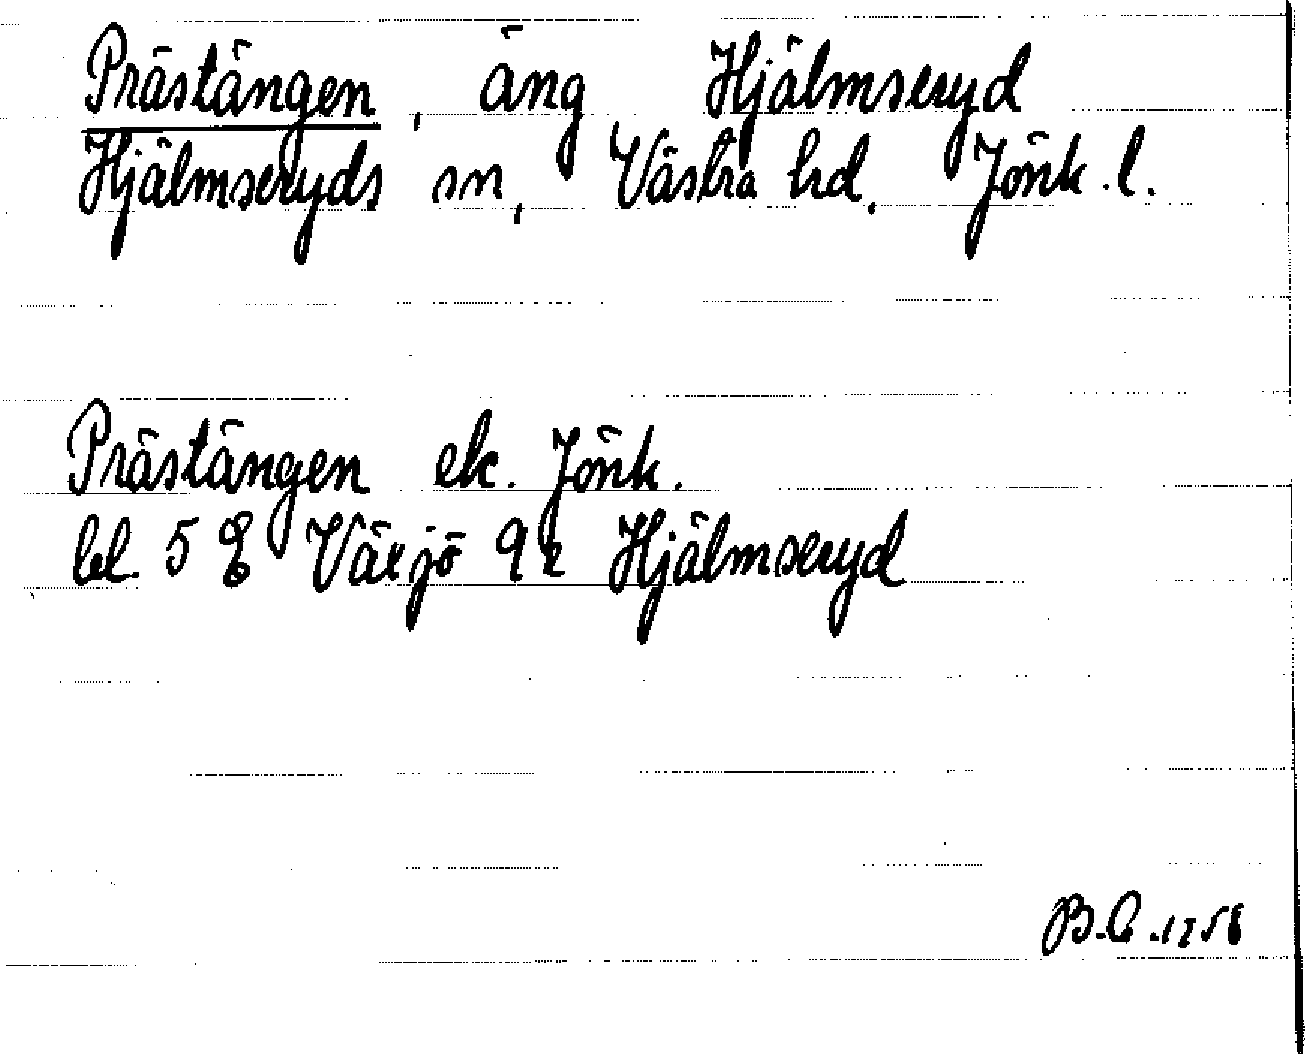 Prästängen, äng Hjälmseryd
Hjälmseryds sn, Västra hd. Jönk. l.
Prästängen ek. Jönk.
bl. 5 E Växjö 9 Hjälmseryd
B.C.